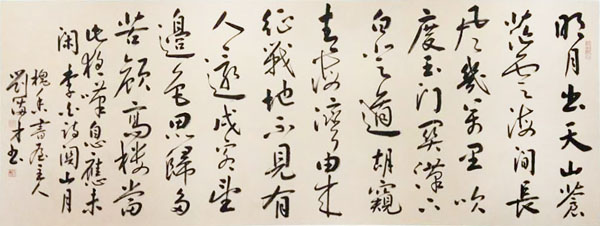 明月出天山蒼
茫雲海間長
風幾萬里吹
度玉門關漢下
白登道胡窺
青海灣由來
征戰地不見有
人還戍客望
邊色思歸多
苦顏高樓當
此夜嘆息應未
閑李白詩關山月
槐香書屋主人
劉才书